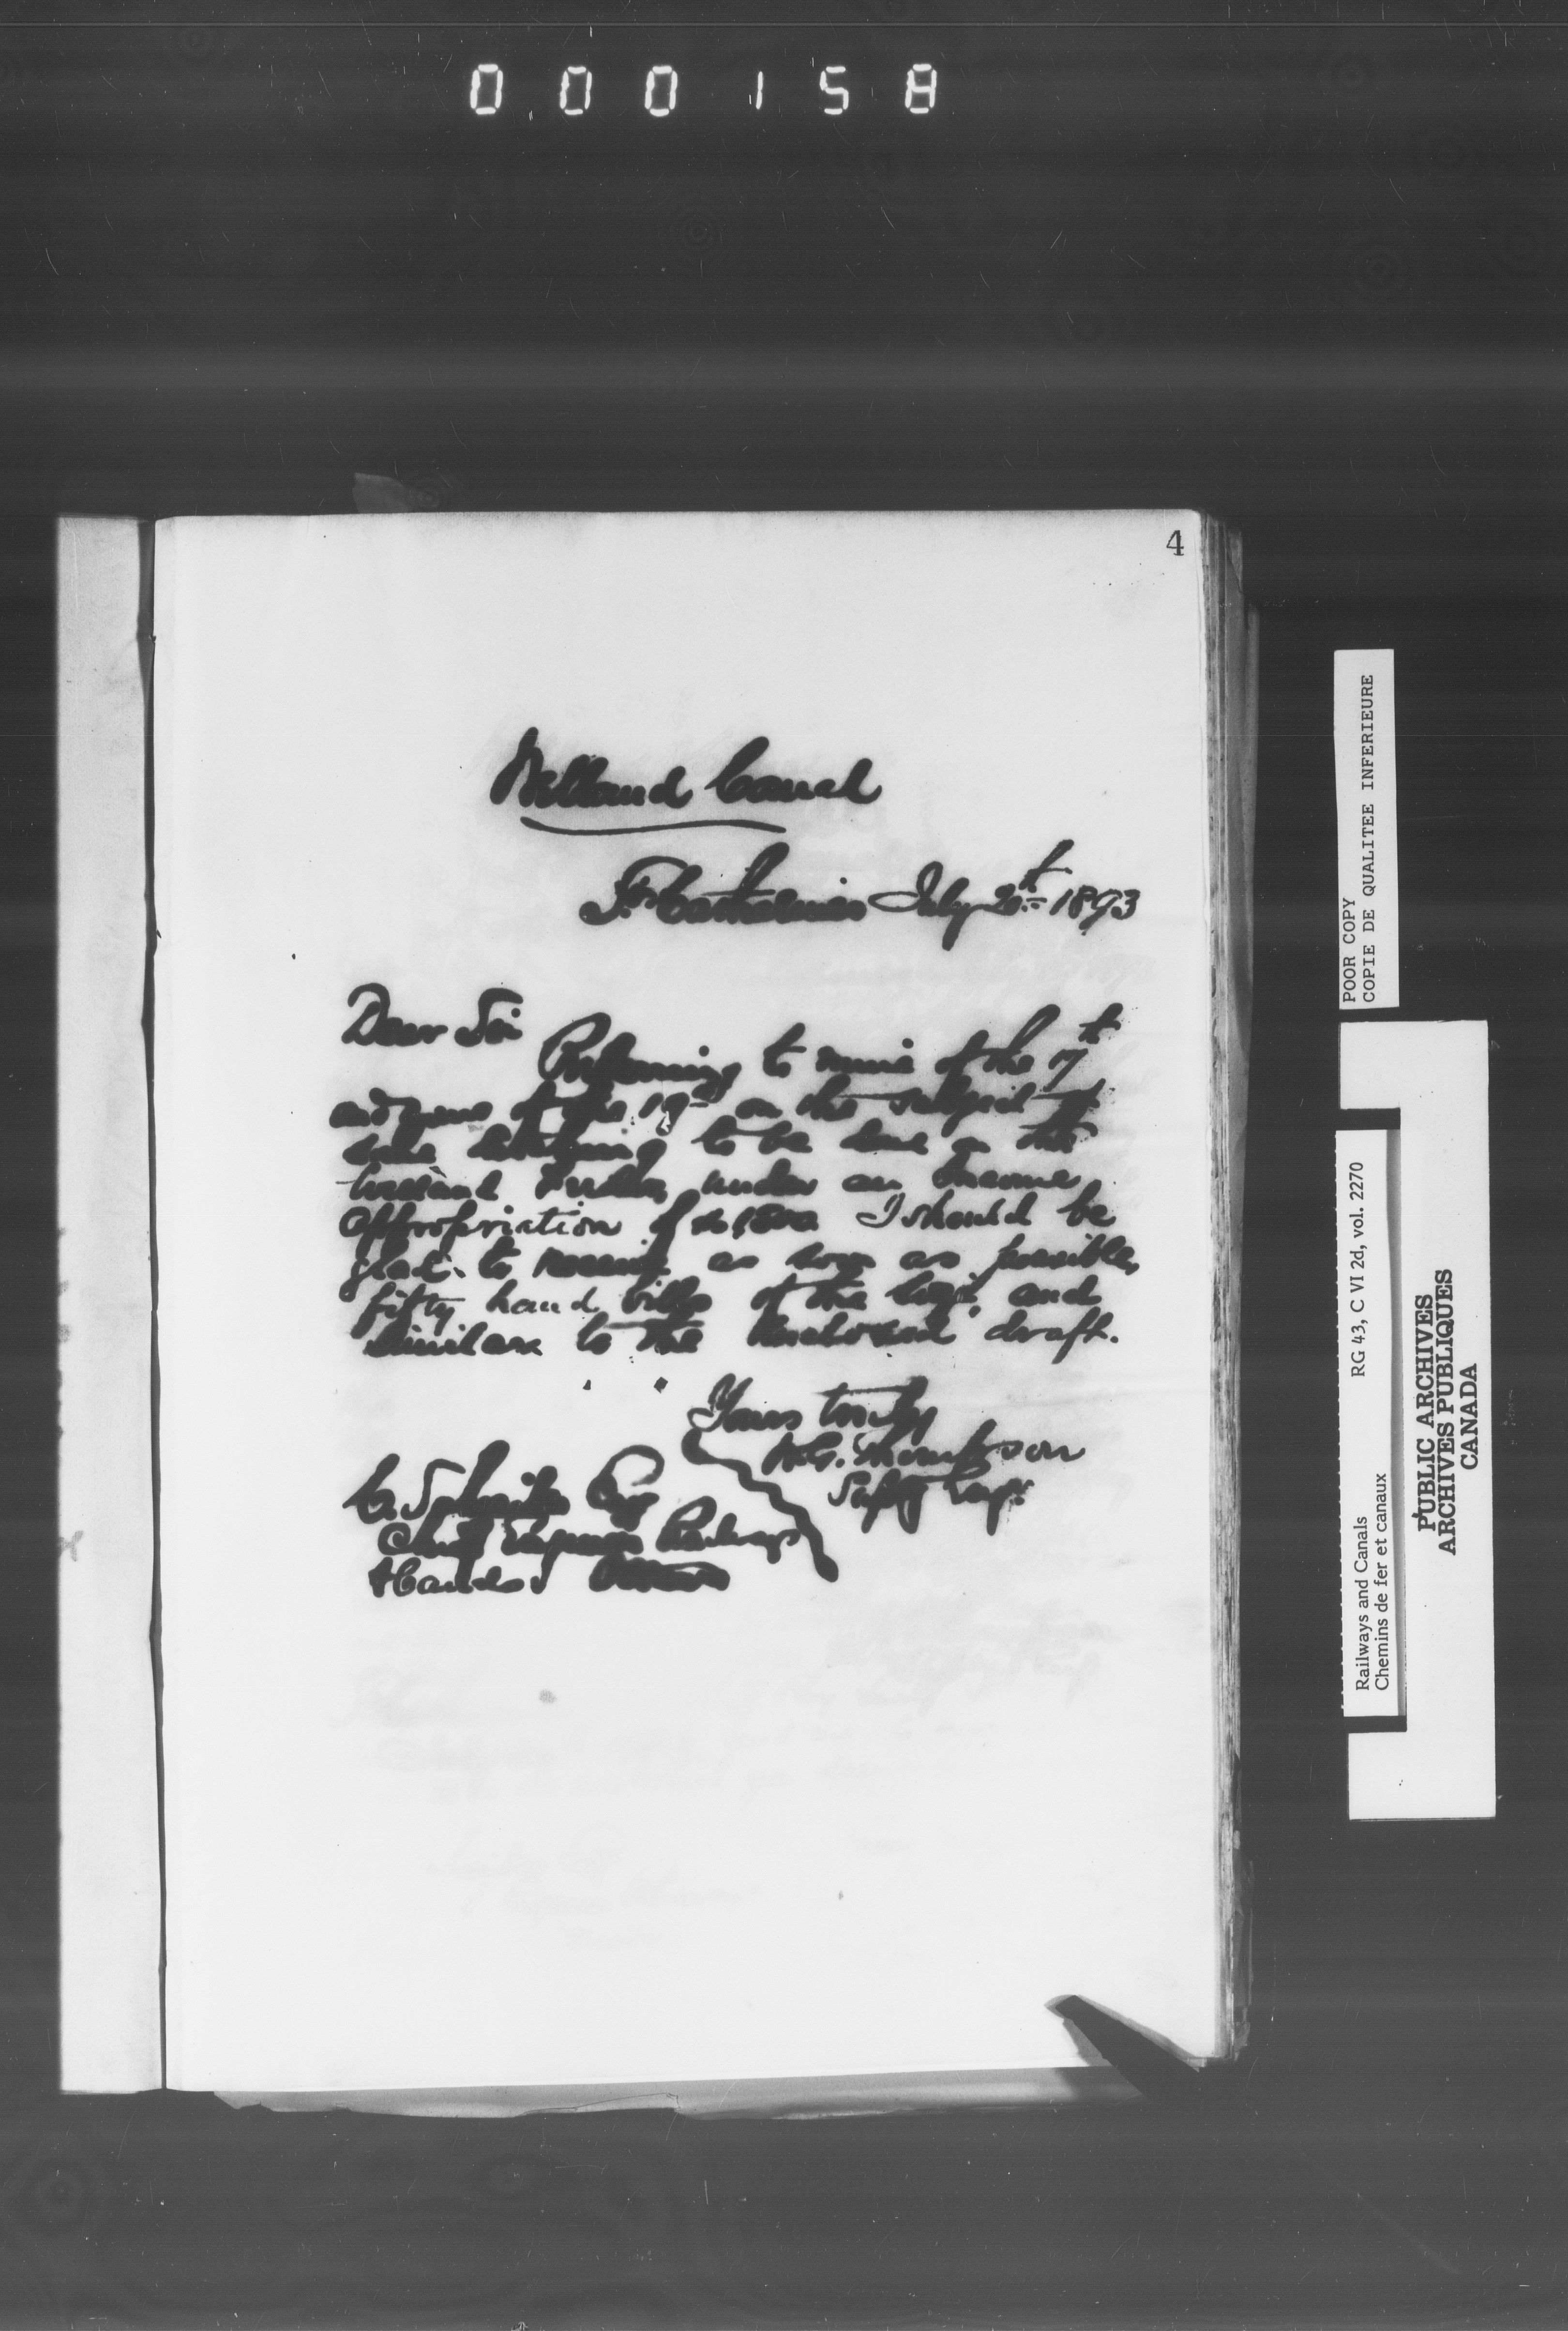 000158
4
Welland Canal
St. Catharines July 20th 1893
Dear Sir
Referring to mine of the 7th
and yours of the 19th on the subject of
some to be done on the
Feeder, under an Income
Appropriation of I should be
glad to receive as soon as possible,
fifty hand bills of the and
similar to the enclosed draft.
Yours truly
W.G. Thompson
Supty Engr.
C. Schreiber Esq
Chief Engineer Railways
& Canals Ottawa
POOR COPY
COPIE DE QUALITEE INFERIEURE
Railways and Canals RG 43, C VI 2d, vol. 2270
Chemins de fer et canaux
PUBLIC ARCHIVES
ARCHIVES PUBLIQUES
CANADA